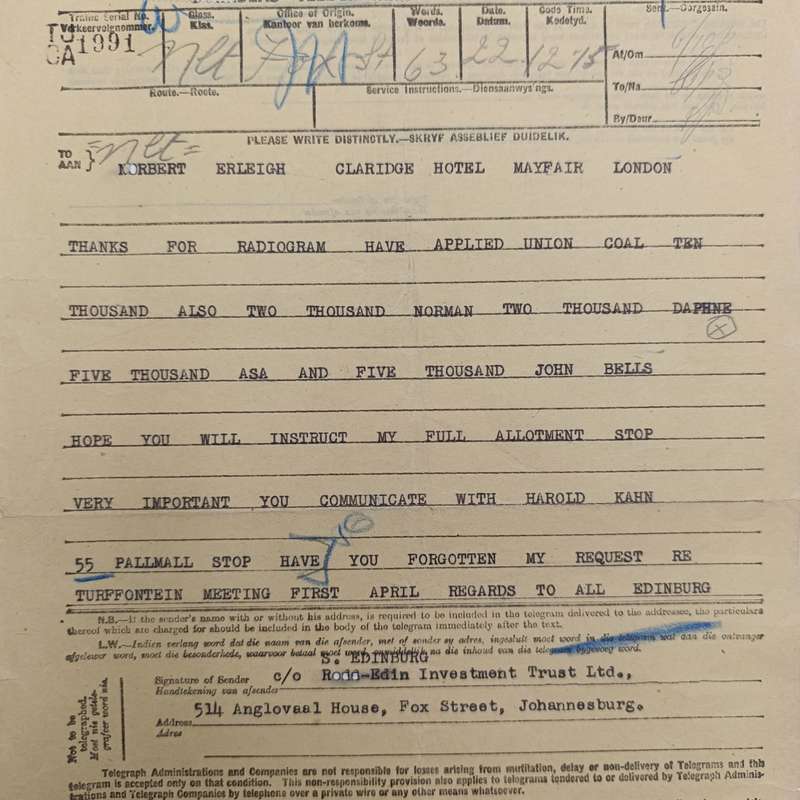 Trains Serial No. Class. Office of Origin. Words. Date. Code Time.
Verkeervolgnommer. Klas. Kantoor van herkoms. Woorde. Datum. Kodetyd.
CA 1991 nlt Fox St 63 22 1215
Af/Om
To/Na
By/Deur
Route.—Roete. Service Instructions.—Diensaanwysings.
PLEASE WRITE DISTINCTLY.—SKRYF ASSEBLIEF DUIDELIK.
=nlt=
TO
AAN
NORBERT ERLEIGH CLARIDGE HOTEL MAYFAIR LONDON
THANKS FOR RADIOGRAM HAVE APPLIED UNION COAL TEN
THOUSAND ALSO TWO THOUSAND NORMAN TWO THOUSAND DAPHNE
FIVE THOUSAND ASA AND FIVE THOUSAND JOHN BELLS
HOPE YOU WILL INSTRUCT MY FULL ALLOTMENT STOP
VERY IMPORTANT YOU COMMUNICATE WITH HAROLD KAHN
55 PALLMALL STOP HAVE YOU FORGOTTEN MY REQUEST RE
TURFFONTEIN MEETING FIRST APRIL REGARDS TO ALL EDINBURG
N.B.—If the sender's name with or without his address, is required to be included in the telegram delivered to the addressee, the particulars
thereof which are charged for should be included in the body of the telegram immediately after the text.
L.W.—Indien verlang word dat die naam van die afsender, met of sonder sy adres, ingesluit moet word in die telegram wat aan die ontvanger
afgelewer word, moet die besonderhede, waarvoor betaal moet word, onmiddelik na die inhoud van die telegram bygevoeg word.
S. EDINBURG
Signature of Sender c/o Rodd-Edin Investment Trust Ltd.,
Handtekening van afsender
514 Anglovaal House, Fox Street, Johannesburg.
Address
Adres
Not to be
telegraphed.
Moet nie getele-
grafeer word nie.
Telegraph Administrations and Companies are not responsible for losses arising from mutilation, delay or non-delivery of Telegrams and this
telegram is accepted only on that condition. This non-responsibility provision also applies to telegrams tendered to or delivered by Telegraph Adminis-
trations and Telegraph Companies by telephone over a private wire or any other means whatsoever.